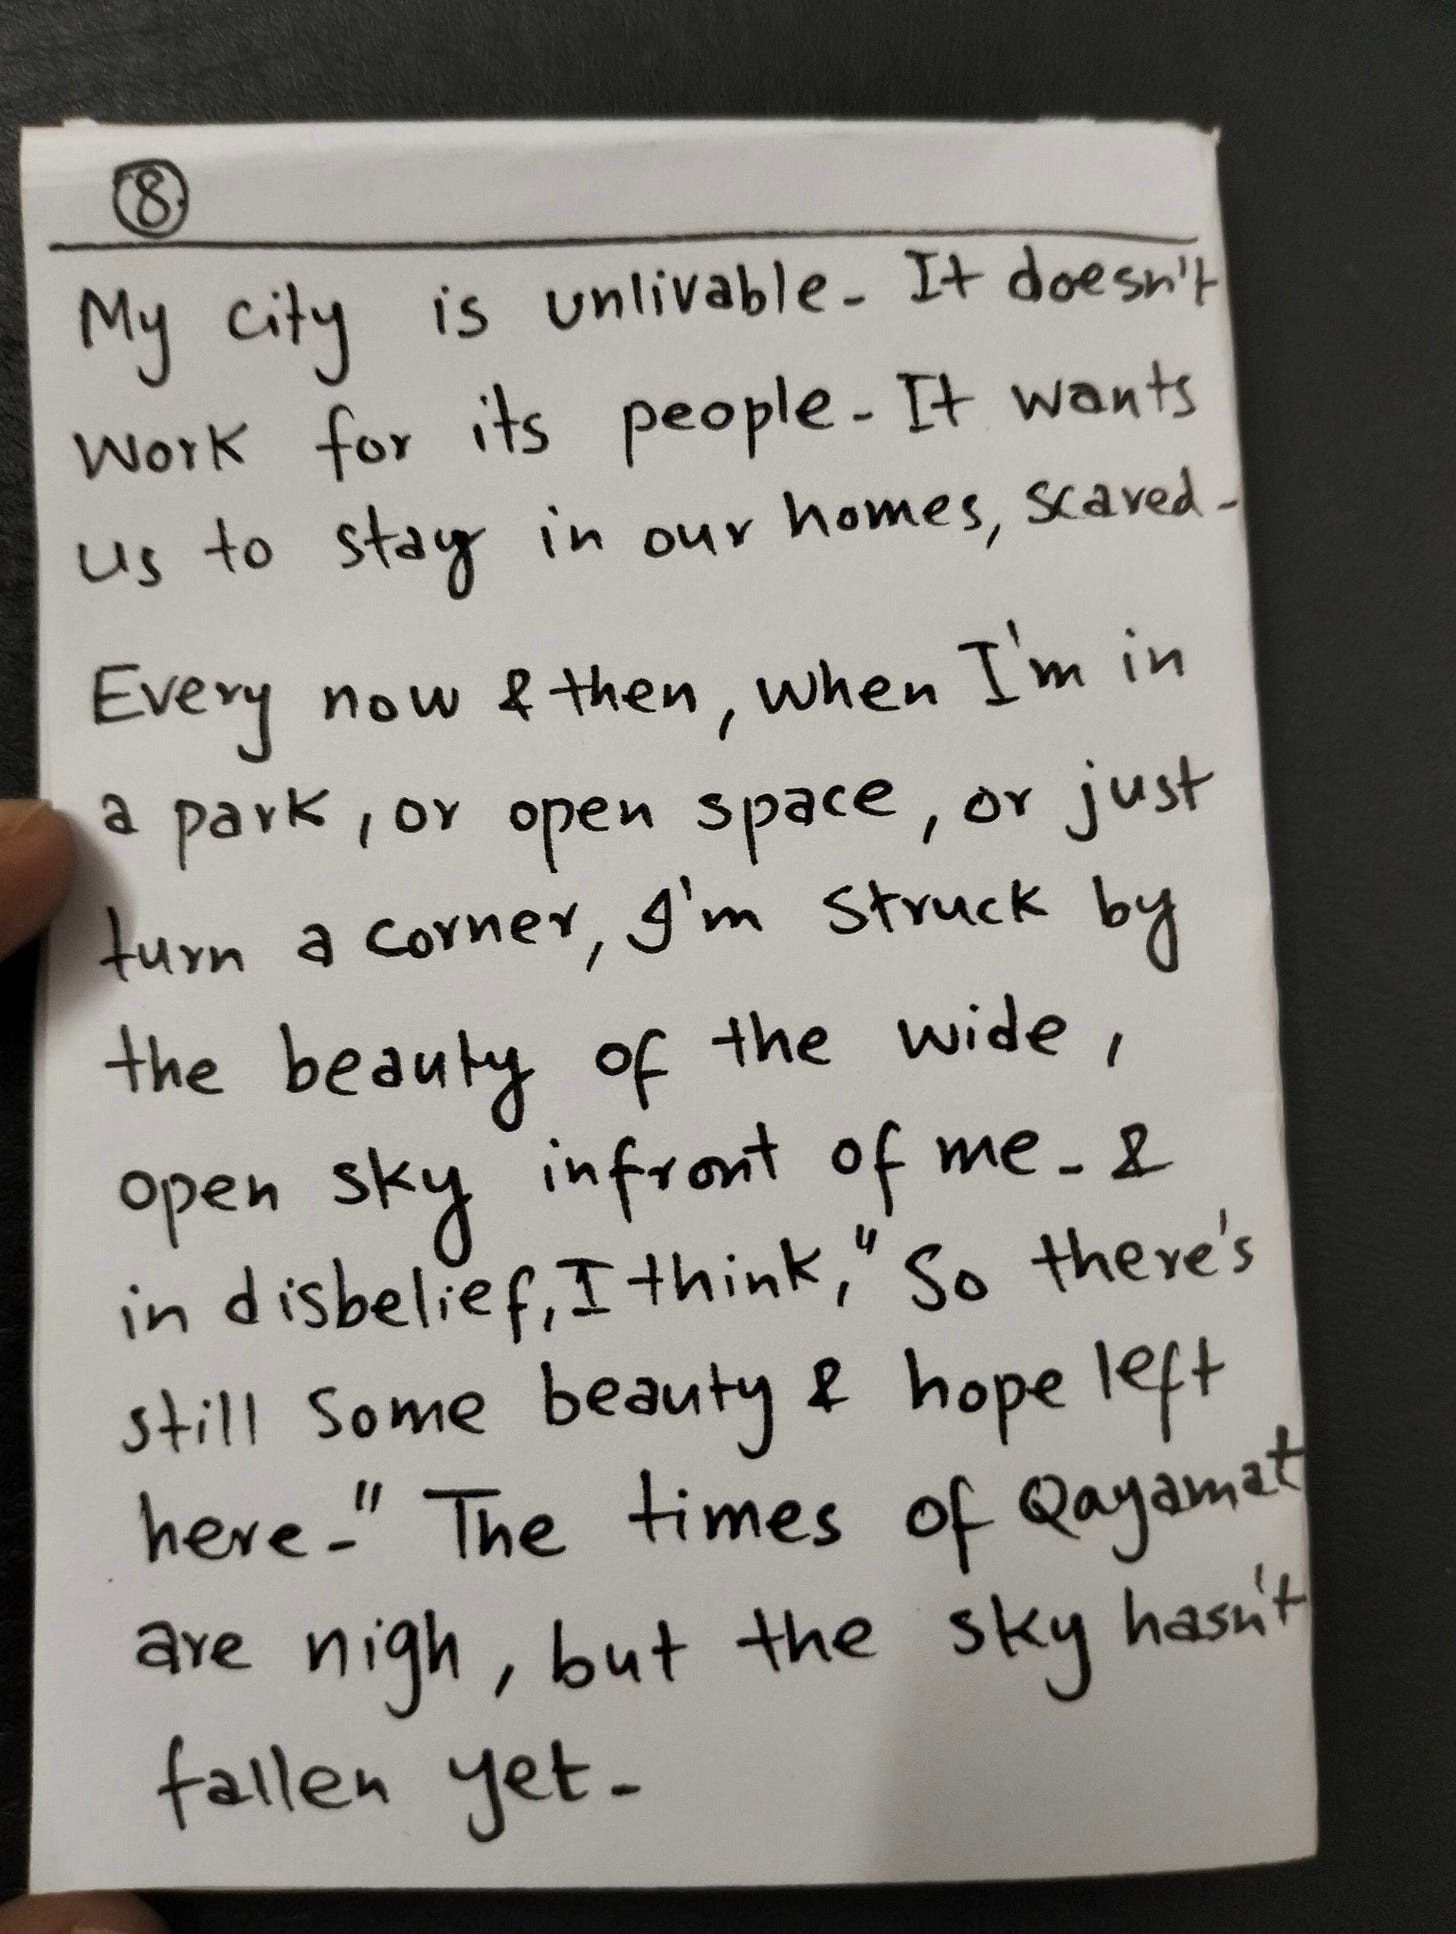 8
My city is unlivable- It doesn't
work for its people- It wants
us to stay in our homes, scared-
Every now & then, when I'm in
a park, or open space, or just
turn a corner, I'm struck by
the beauty of the wide,
open sky infront of me- &
in disbelief, I think, "So there's
still some beauty & hope left
here-" The times of Qayamat
are nigh, but the sky hasn't
fallen yet-